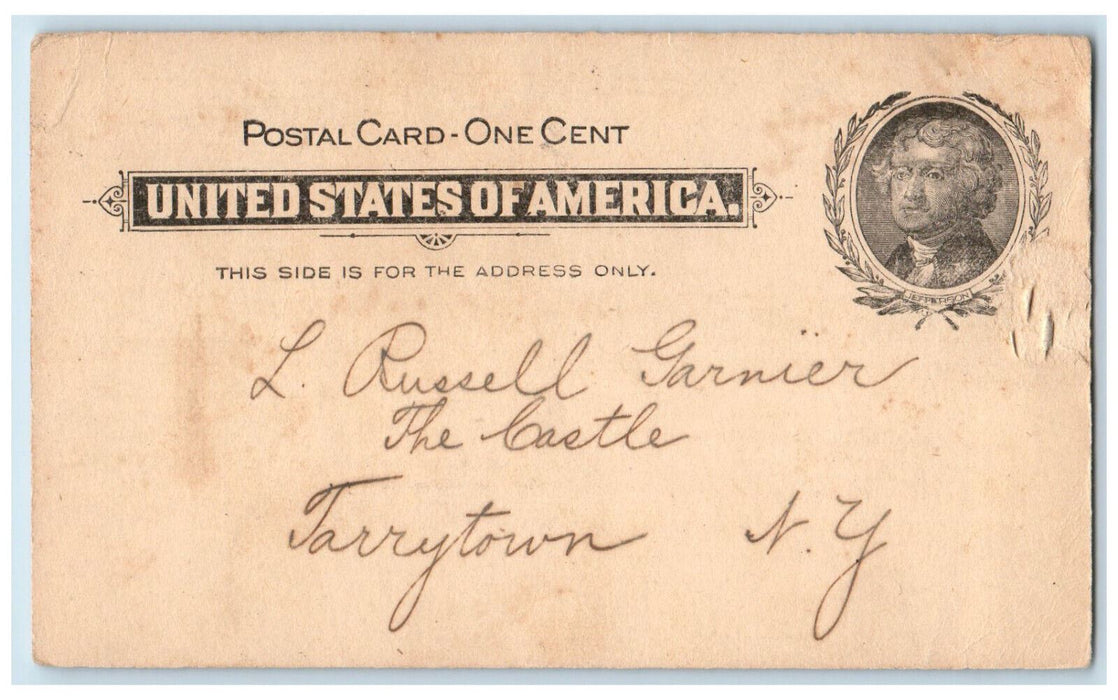 POSTAL CARD - ONE CENT
UNITED STATES OF AMERICA.
THIS SIDE IS FOR THE ADDRESS ONLY.
JEFFERSON
L. Russell Garnier
The Castle
Tarrytown N. Y